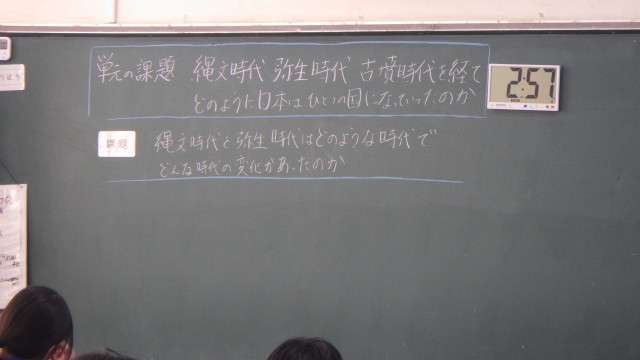 単元の課題 縄文時代 弥生時代 古墳時代を経て
どのように日本はひとつの国になっていったのか
2:57
課題 縄文時代と弥生時代はどのような時代で
どんな時代の変化があったのか